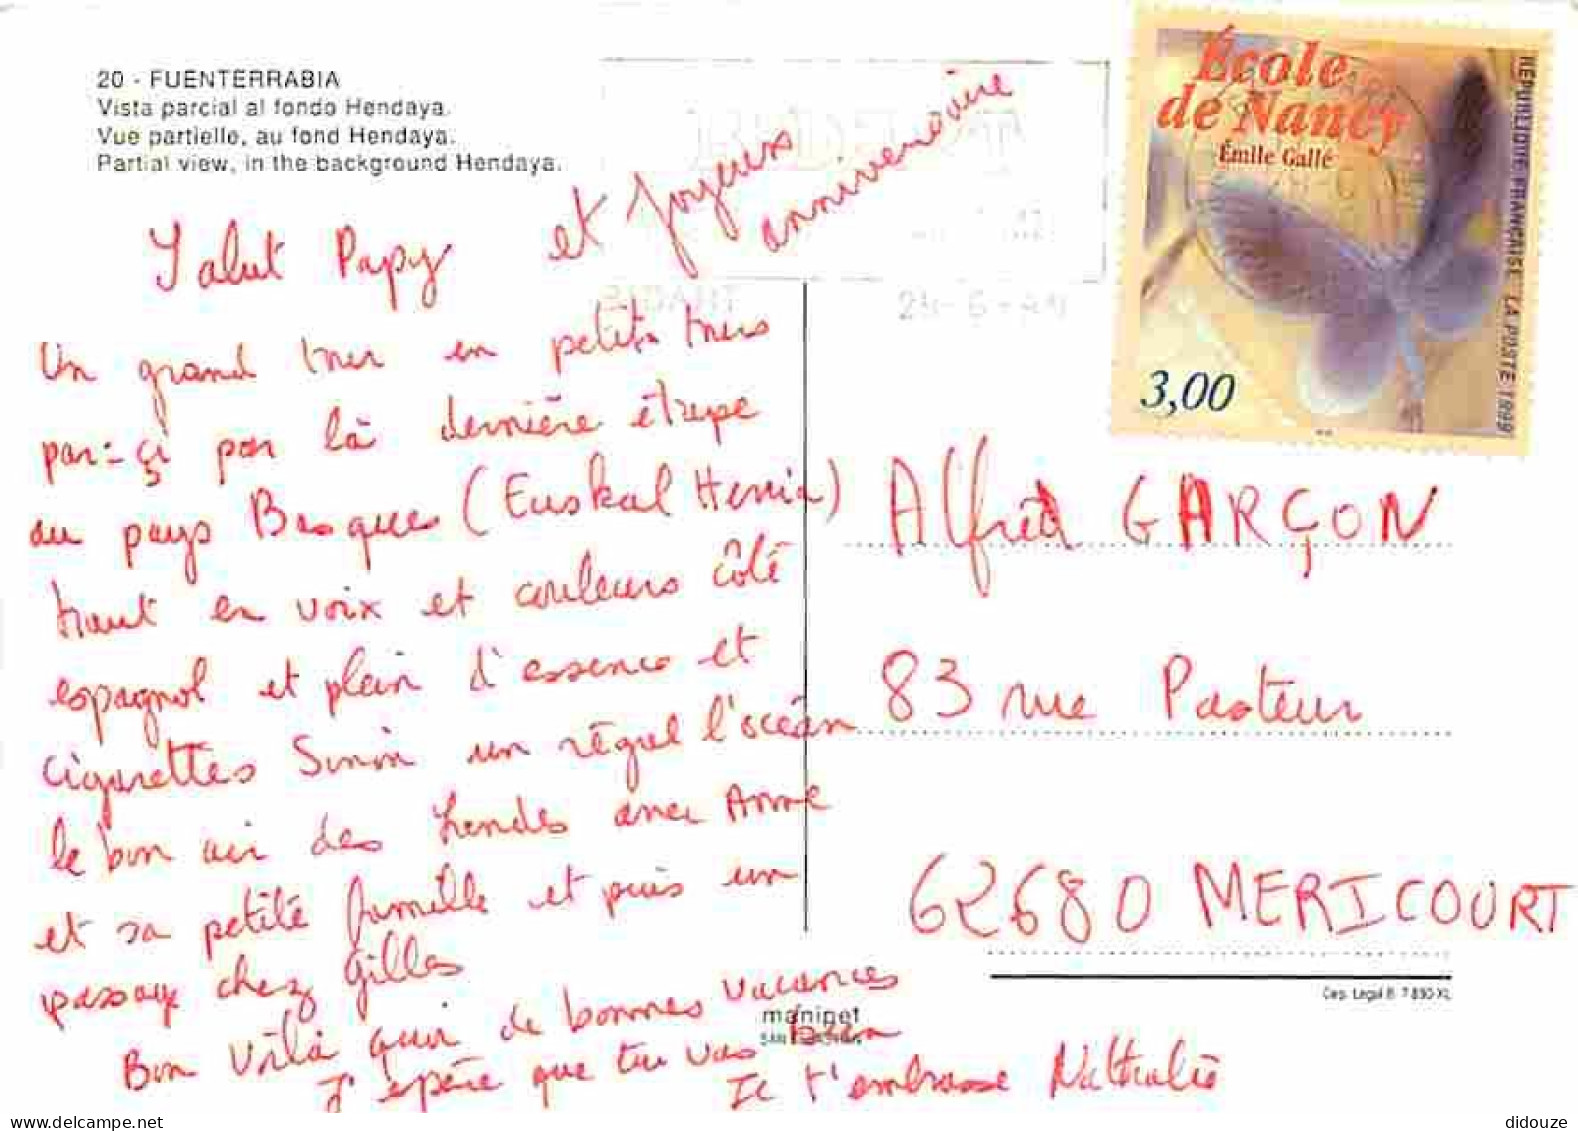 20 - FUENTERRABIA
Vista parcial al fondo Hendaya.
Vue partielle, au fond Hendaya.
Partial view, in the background Hendaya.
École
de Nancy
Émile Gallé
RÉPUBLIQUE FRANÇAISE LA POSTE 1999
3,00
Salut Papy et joyeux
anniversaire
Un grand tour en petits tours
par-çi par là dernière étape
au pays Basques (Euskal Herria)
haut en voix et couleurs côté
espagnol et plein d'essence et
cigarettes Sinon un régal l'océan
le bon air des Landes avec Anne
et sa petite famille et puis un
passage chez Gilles
Bon voilà quoi de bonnes vacances
J'espère que tu vas bien
Je t'embrasse Nathalie
Alfred GARÇON
83 rue Pasteur
62680 MERICOURT
Dep. Legal B. 7.830-XL
manipel
didouze